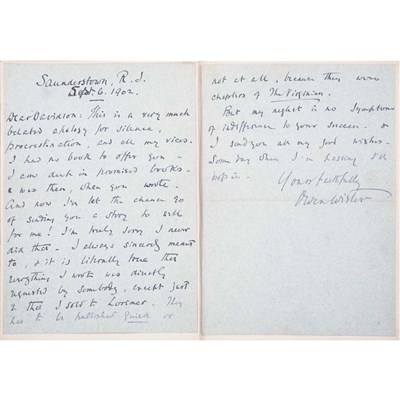 Saunderstown, R.I.
Sept. 6. 1902.
Dear Davidson: This is a very much
belated apology for silence,
procrastination, and all my vices.
I had no book to offer you –
I am deut in promised books –
& was then, when you wrote.
And now I've let the chance go
of sending you a story to sell
for me! I'm truly sorry I never
did this – I always sincerely meant
to, & it is literally true that
everything I wrote was directly
requested by somebody, except just
2 that I sold to Lorimer. They
had to be published quick or
not at all, because they were
chapters of The Virginian.
But my neglect is no symptom
of indifference to your success. &
I send you all my good wishes.
Some day when I'm passing I'll
drop in.
Yours faithfully
Owen Wister